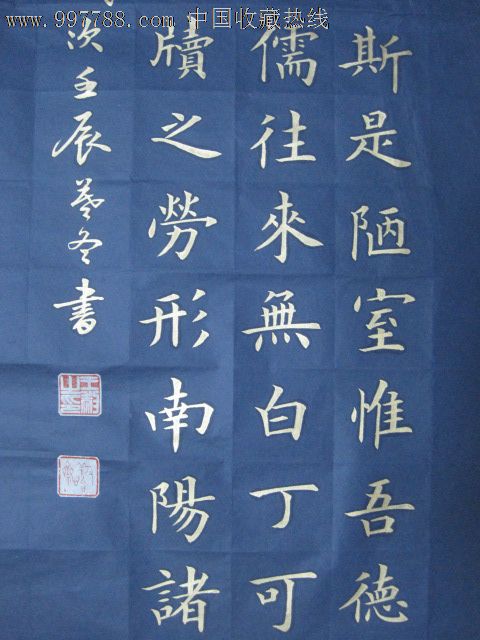 www.997788.com 中国收藏热线
斯是陋室惟吾德
儒往來無白丁可
牘之勞形南陽諸
次壬辰冬書